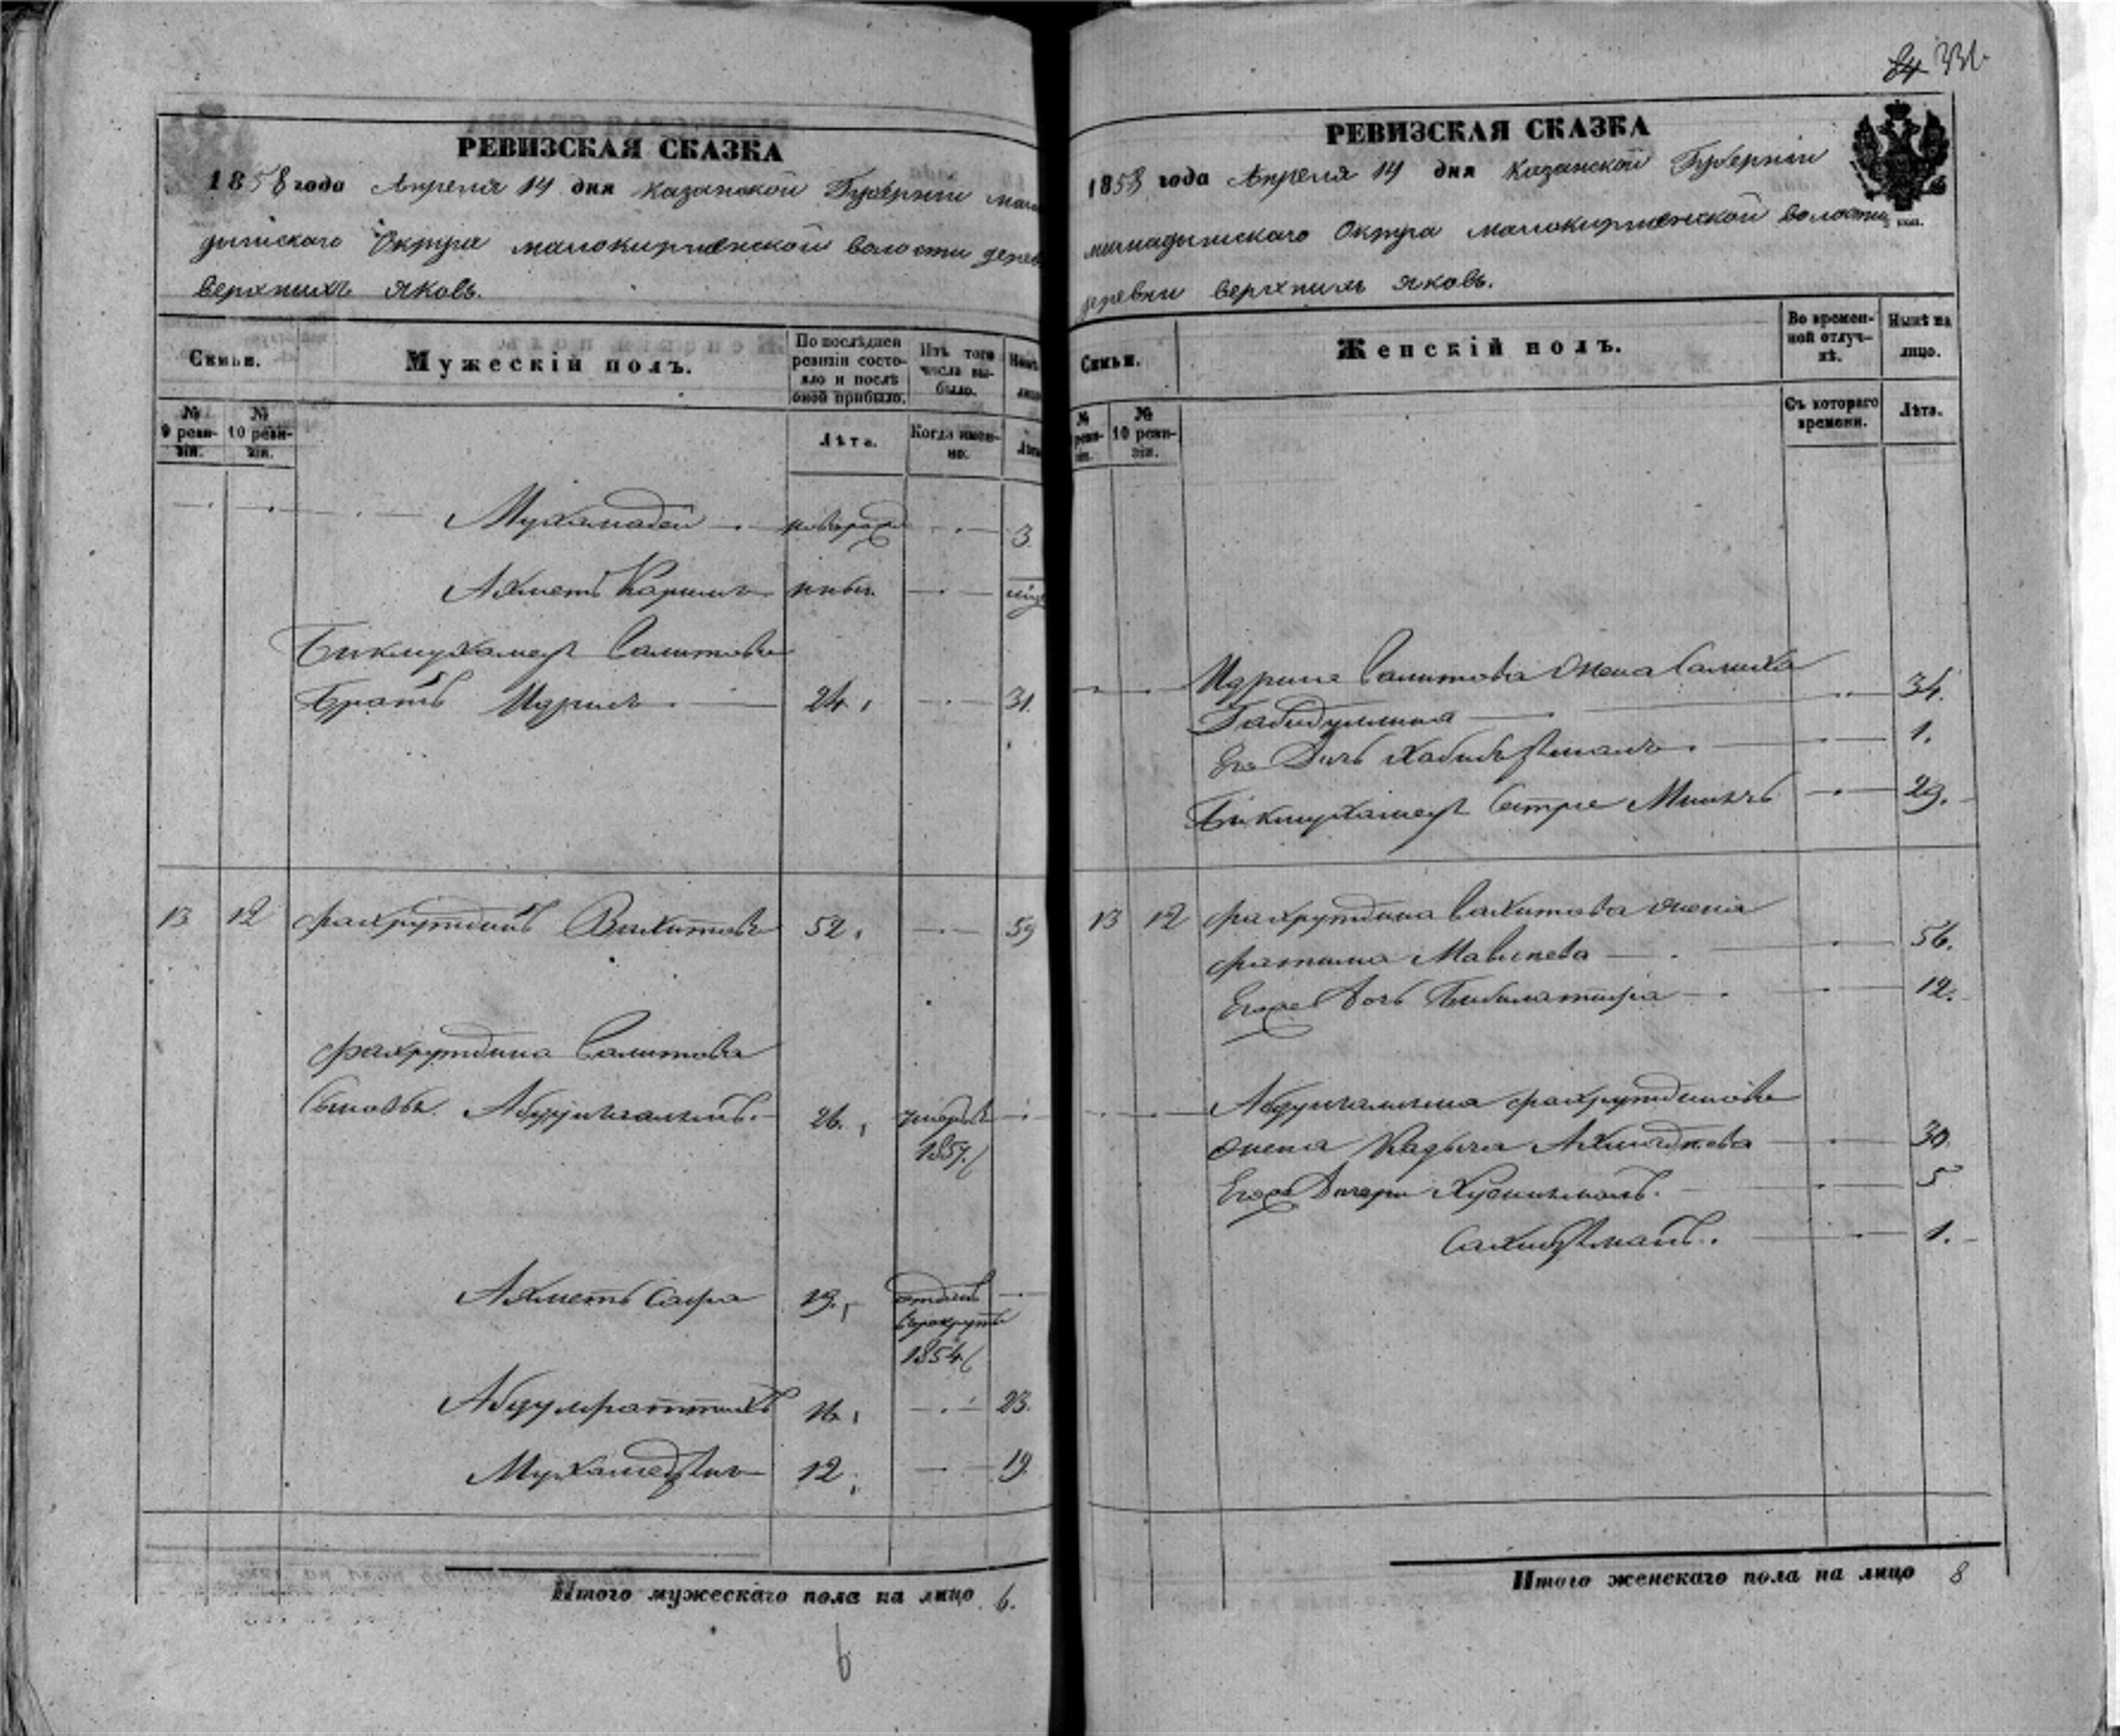 84 331
РЕВИЗСКАЯ СКАЗКА
1858 года Апреля 14 дня Казанской Губернии мама
дышского Округа малокирменской волости дерев
верхнихъ яковъ.
Семьи.
Мужескій полъ.
По послѣдней ревизіи состояло и послѣ оной прибыло.
Изъ того числа выбыло.
Нынѣ
лицо
№ 9 ревизіи.
№ 10 ревизіи.
Лѣта.
Когда именно.
Лѣта
Мухамадей новорож 3.
Ахметъ Каримъ
Бикмухамед Салитова
братъ Идрисъ 24. 31.
13 12 Фахрутдинъ Вахитовъ 52. 59
Фахрутдина Салитова
Сыновья 26. умеръ
1857.
Ахметъ Сафа 19. отданъ
в рекруты
1854
Абдулфаттихъ 16. 23.
Мухамедзянъ 12. 19.
Итого мужескаго пола на лицо 6.
6
РЕВИЗСКАЯ СКАЗКА
1858 года Апреля 14 дня Казанской Губернии
мамадышского Округа малокирменской волости
деревни верхнихъ яковъ.
Семьи.
Женскій полъ.
Во временной отлучкѣ.
Нынѣ на лицо.
№ ревизіи.
№ 10 ревизіи.
Съ котораго времени.
Лѣта.
Идриса Салитова жена Салиха
Габидуллина 34.
Его дочь 1.
Бикмухамед Сестра 29.
13 12 Фахрутдина Вахитова жена
Фатима 56.
Егоже дочь Бибилатифа 12.
Фахрутдинова
жена 30.
Егоже дочери 5
1.
Итого женскаго пола на лицо 8